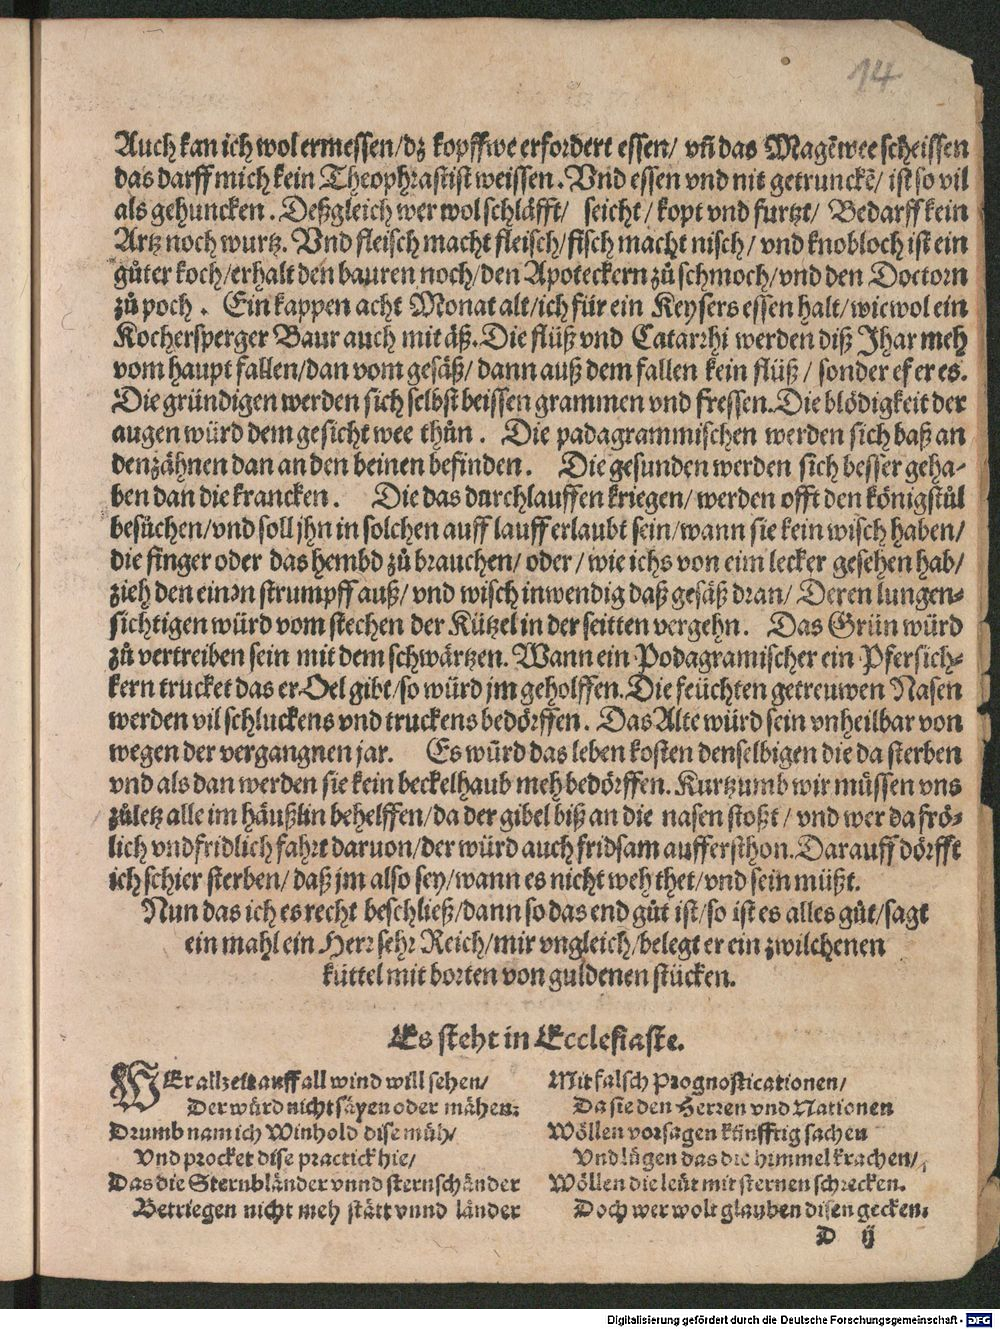 14
Auch kan ich wol ermessen/dz kopffwe erfordert essen/ vñ das Magẽwee scheissen
das darff mich kein Theophrastist weissen. Vnd essen vnd nit getrunckẽ/ ist so vil
als gehuncken. Deßgleich wer wol schläfft/ seicht/ kopt vnd furtzt/ Bedarff kein
Artz noch wurtz. Vnd fleisch macht fleisch/fisch macht nisch/ vnd knobloch ist ein
gůter koch/erhalt den bauren noch/den Apoteckern zů schmoch/vnd den Doctorn
zů poch. Ein kappen acht Monat alt/ich für ein Keysers essen halt/wiewol ein
Kochersperger Baur auch mit äß. Die flüß vnd Catarrhi werden diß Jhar meh
vom haupt fallen/dan vom gesäß/ dann auß dem fallen kein flüß/ sonder ef er es.
Die gründigen werden sich selbst beissen grammen vnd fressen. Die blödigkeit der
augen würd dem gesicht wee thůn. Die padagrammischen werden sich baß an
den zähnen dan an den beinen befinden. Die gesunden werden sich besser geha-
ben dan die krancken. Die das durchlauffen kriegen/ werden offt den königstůl
besůchen/vnd soll jhn in solchen auff lauff erlaubt sein/wann sie kein wisch haben/
die finger oder das hembd zů brauchen/ oder/ wie ichs von eim lecker gesehen hab/
zieh den einen strumpff auß/ vnd wisch inwendig daß gesäß dran/ Deren lungen-
sichtigen würd vom stechen der Kützel in der seitten vergehn. Das Grün würd
zů vertreiben sein mit dem schwärtzen. Wann ein Podagramischer ein Pfersich-
kern trucket das er Oel gibt/so würd jm geholffen. Die feüchten getreuwen Nasen
werden vil schluckens vnd truckens bedörffen. Das Alte würd sein vnheilbar von
wegen der vergangnen jar. Es würd das leben kosten denselbigen die da sterben
vnd als dan werden sie kein beckelhaub meh bedörffen. Kurtzumb wir müssen vns
zůletz alle im häußlin behelffen/da der gibel biß an die nasen stoßt/ vnd wer da frö-
lich vnd fridlich fahrt daruon/der würd auch fridsam aufferston. Darauff dörfft
ich schier sterben/ daß jm also sey/wann es nicht weh thet/vnd sein müßt.
Nun das ich es recht beschließ/dann so das end gůt ist/so ist es alles gůt/sagt
ein mahl ein Herr sehr Reich/mir vngleich/belegt er ein zwilchenen
küttel mit borten von guldenen stücken.
Es steht in Ecclesiaste.
WEr allzeit auff all wind will sehen/
Der würd nicht säyen oder mähen:
Drumb nam ich Winhold dise müh/
Vnd procket dise practick hie/
Das die Sternbländer vnnd sternschänder
Betriegen nicht meh stätt vnnd länder
Mit falsch Prognosticationen/
Da sie den Herren vnd Nationen
Wöllen vorsagen künfftig sachen
Vnd lügen das die himmel krachen/
Wöllen die leüt mit sternen schrecken.
Doch wer wolt glauben disen gecken.
D ij
Digitalisierung gefördert durch die Deutsche Forschungsgemeinschaft - DFG